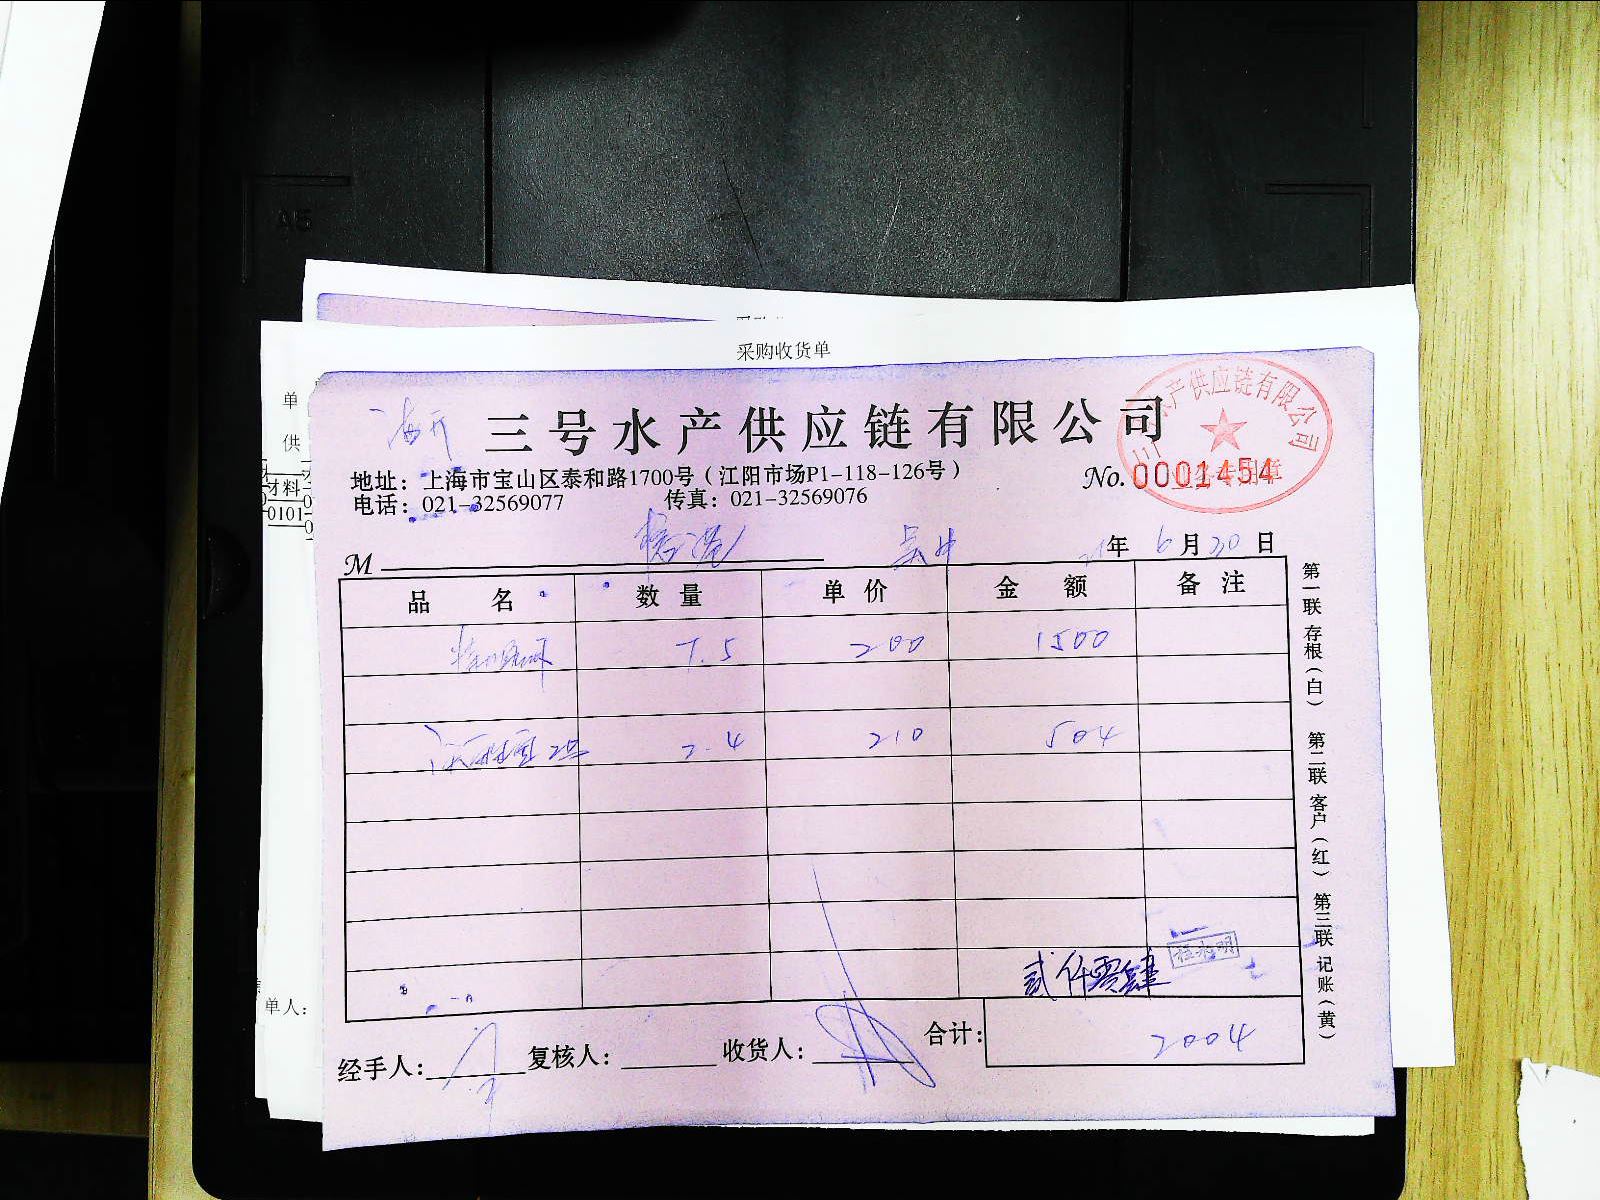 采购收货单
单
供
材料
0101
单人：
三号水产供应链有限公司
水产供应链有限公司
地址：上海市宝山区泰和路1700号（江阳市场P1-118-126号）
No. 0001454
电话：021-32569077 传真：021-32569076
M 21年 6月30日
品名 数量 单价 金额 备注
7.5 200 1500
2.4 210 504
贰仟零肆
合计： 2004
经手人： 复核人： 收货人：
第一联存根（白） 第二联客户（红） 第三联记账（黄）